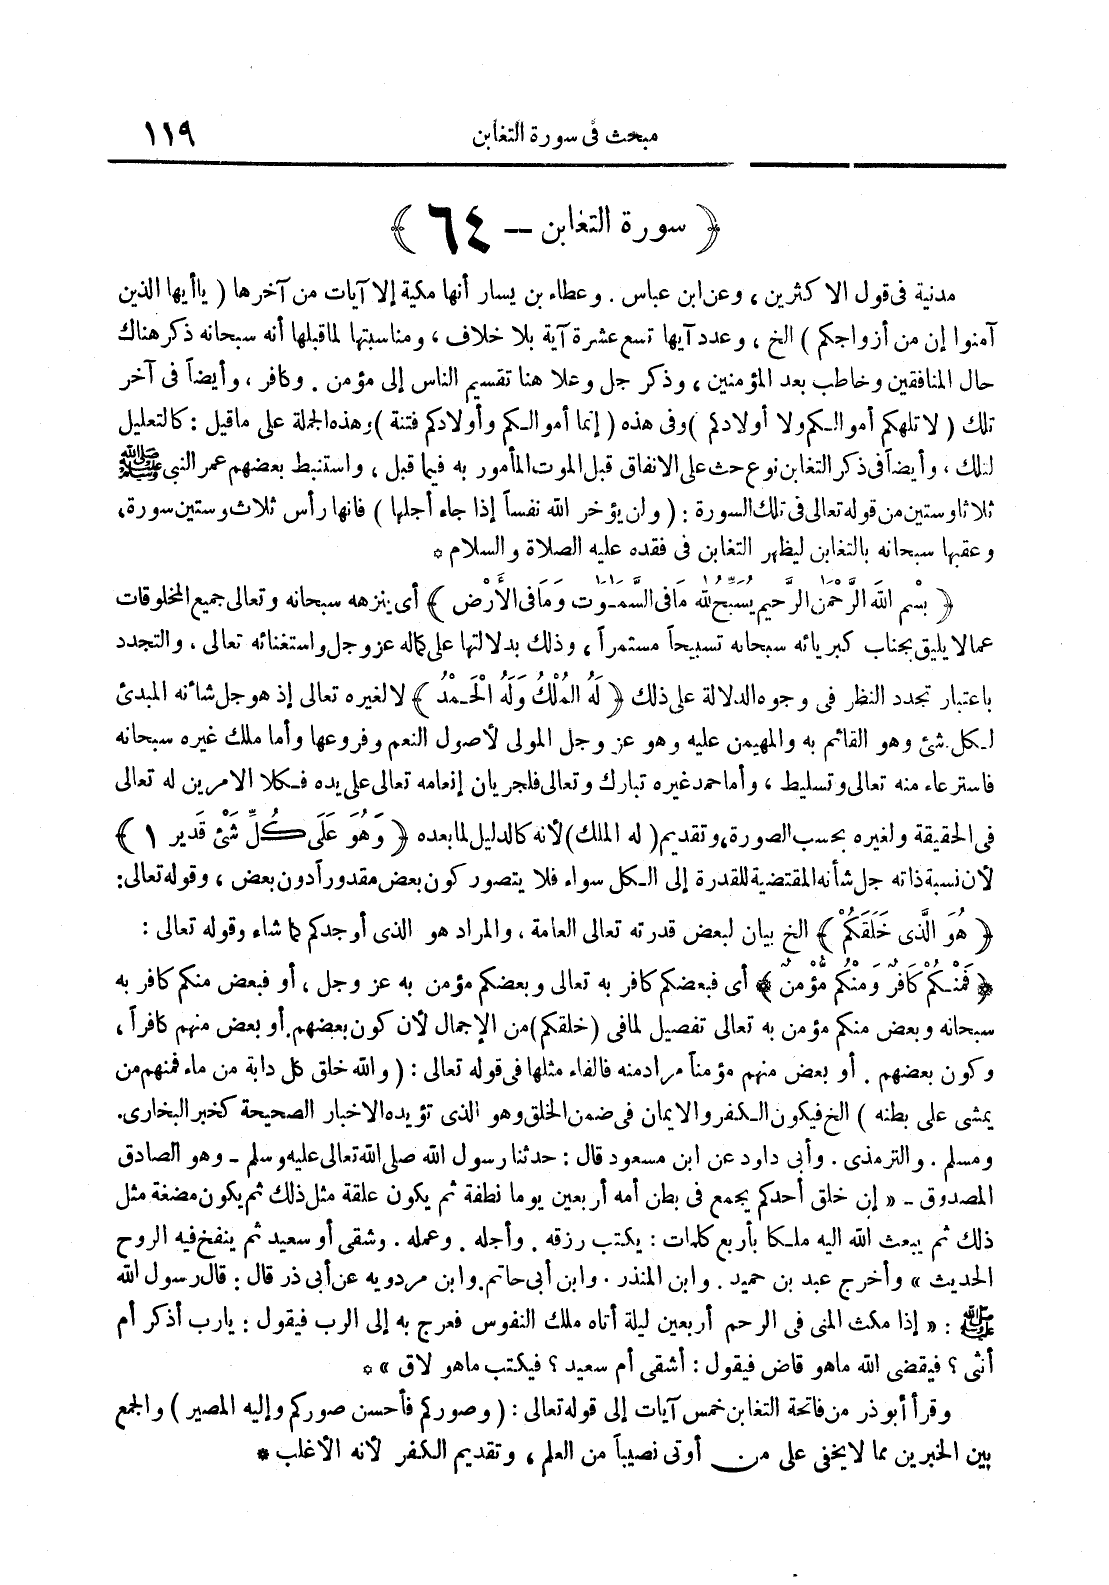 مبحث فى سورة التغابن ١١٩
﴿ سورة التغابن ــ ٦٤ ﴾
مدنية فى قول الاكثرين ، وعن ابن عباس . وعطاء بن يسار أنها مكية إلا آيات من آخرها ( ياأيها الذين
آمنوا إن من أزواجكم ) الخ ، وعدد آيها تسع عشرة آية بلا خلاف ، ومناسبتها لماقبلها أنه سبحانه ذكر هناك
حال المنافقين وخاطب بعد المؤمنين ، وذكر جل وعلا هنا تقسيم الناس إلى مؤمن . وكافر ، وأيضاً فى آخر
تلك ( لا تلهكم أموالـكم ولا أولادكم ) وفى هذه ( إنما أموالـكم وأولادكم فتنة ) وهذه الجملة على ماقيل : كالتعليل
لتلك ، وأيضاً فى ذكر التغابن نوع حث على الانفاق قبل الموت المأمور به فيما قبل ، واستنبط بعضهم عمر النبي ﷺ
ثلاثا وستين من قوله تعالى فى تلك السورة : ( ولن يؤخر الله نفساً إذا جاء أجلها ) فانها رأس ثلاث وستين سورة،
وعقبها سبحانه بالتغابن ليظهر التغابن فى فقده عليه الصلاة والسلام *
﴿ بِسْمِ اللهِ الرَّحْمَنِ الرَّحِيمِ يُسَبِّحُ لِلّهِ مَافى السَّمَـاوَات وَمَافى الأَرْضِ ﴾ أى ينزهه سبحانه وتعالى جميع المخلوقات
عمالا يليق بجناب كبريائه سبحانه تسبيحاً مستمراً ، وذلك بدلالتها على كماله عز وجل واستغنائه تعالى ، والتجدد
باعتبار تجدد النظر فى وجوه الدلالة على ذلك ﴿ لَهُ الْمُلْكُ وَلَهُ الْحَـمْدُ ﴾ لا لغيره تعالى إذ هو جل شأنه المبدئ
لـكل شئ وهو القائم به والمهيمن عليه وهو عز وجل المولى لأصول النعم وفروعها وأما ملك غيره سبحانه
فاسترعاء منه تعالى وتسليط ، وأما حمد غيره تبارك وتعالى فلجريان إنعامه تعالى على يده فـكلا الامرين له تعالى
فى الحقيقة ولغيره بحسب الصورة ، وتقديم ( له الملك ) لأنه كالدليل لما بعده ﴿ وَهُوَ عَلَى كُلِّ شَىْءٍ قَدير ١ ﴾
لأن نسبة ذاته جل شأنه المقتضية للقدرة إلى الـكل سواء فلا يتصور كون بعض مقدوراً دون بعض ، وقوله تعالى:
﴿ هُوَ الَّذى خَلَقَكُمْ ﴾ الخ بيان لبعض قدرته تعالى العامة ، والمراد هو الذى أوجدكم كما شاء وقوله تعالى :
﴿ فَمِنْـكُمْ كَافرٌ وَمنْكُم مُّؤْمنٌ ﴾ أى فبعضكم كافر به تعالى وبعضكم مؤمن به عز وجل ، أو فبعض منكم كافر به
سبحانه وبعض منكم مؤمن به تعالى تفصيل لمافى (خلقكم) من الإجمال لأن كون بعضهم . أو بعض منهم كافراً ،
وكون بعضهم . أو بعض منهم مؤمناً مراد منه فالفاء مثلها فى قوله تعالى : ( والله خلق كل دابة من ماء فمنهم من
يمشى على بطنه ) الخ فيكون الـكفر والايمان فى ضمن الخلق وهو الذى تؤيده الاخبار الصحيحة كخبر البخارى.
ومسلم . والترمذى . وأبى داود عن ابن مسعود قال : حدثنا رسول الله صلى الله تعالى عليه وسلم ــ وهو الصادق
المصدوق ــ « إن خلق أحدكم يجمع فى بطن أمه أربعين يوما نطفة ثم يكون علقة مثل ذلك ثم يكون مضغة مثل
ذلك ثم يبعث الله اليه ملـكا بأربع كلمات : يكتب رزقه . وأجله . وعمله . وشقى أو سعيد ثم ينفخ فيه الروح
الحديث » وأخرج عبد بن حميد . وابن المنذر . وابن أبى حاتم . وابن مردويه عن أبى ذر قال : قال رسول الله
ﷺ : « إذا مكث المنى فى الرحم أربعين ليلة أتاه ملك النفوس فعرج به إلى الرب فيقول : يارب أذكر أم
أنثى ؟ فيقضى الله ماهو قاض فيقول : أشقى أم سعيد ؟ فيكتب ماهو لاق » *
وقرأ أبو ذر من فاتحة التغابن خمس آيات إلى قوله تعالى : ( وصوركم فأحسن صوركم وإليه المصير ) والجمع
بين الخبرين مما لا يخفى على من أوتى نصيباً من العلم ، وتقديم الـكفر لأنه الأغلب *